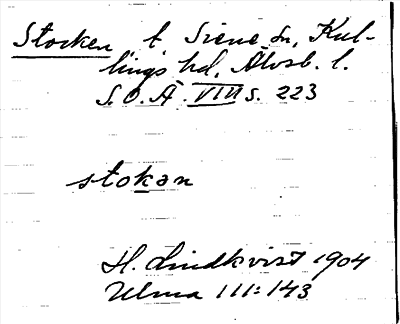 Stocken t. Siene sn, Kul-
lings hd, Älvsb. l.
S.O.Ä. VIII s. 223
stokən
H. Lindkvist 1904
Ulma 111:143